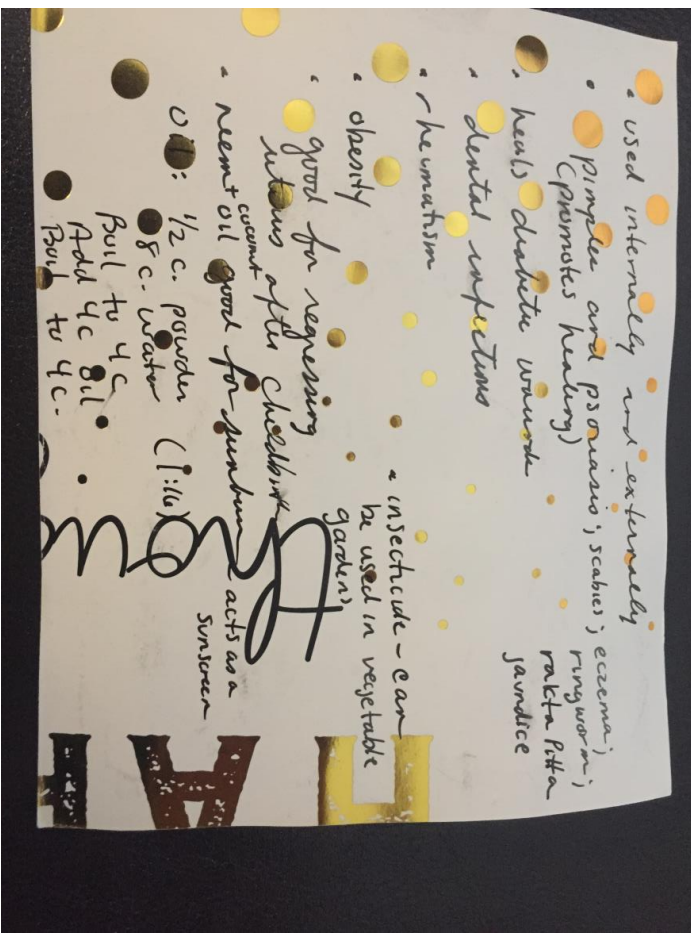 • used internally and externally
• pimples and psoriasis; scabies; eczema;
(promotes healing) ringworm;
rakta Pitta
jaundice
• heals diabetic wounds
• dental infections
• rheumatism
• insecticide - can
be used in vegetable
gardens
• obesity
• good for regressing
uterus after childbirth
• neem + coconut oil good for sunburn acts as a
sunscreen
Oil: 1/2 c. powder (1:16)
8 c. water
Boil to 4c
Add 4c oil
Boil to 4c.